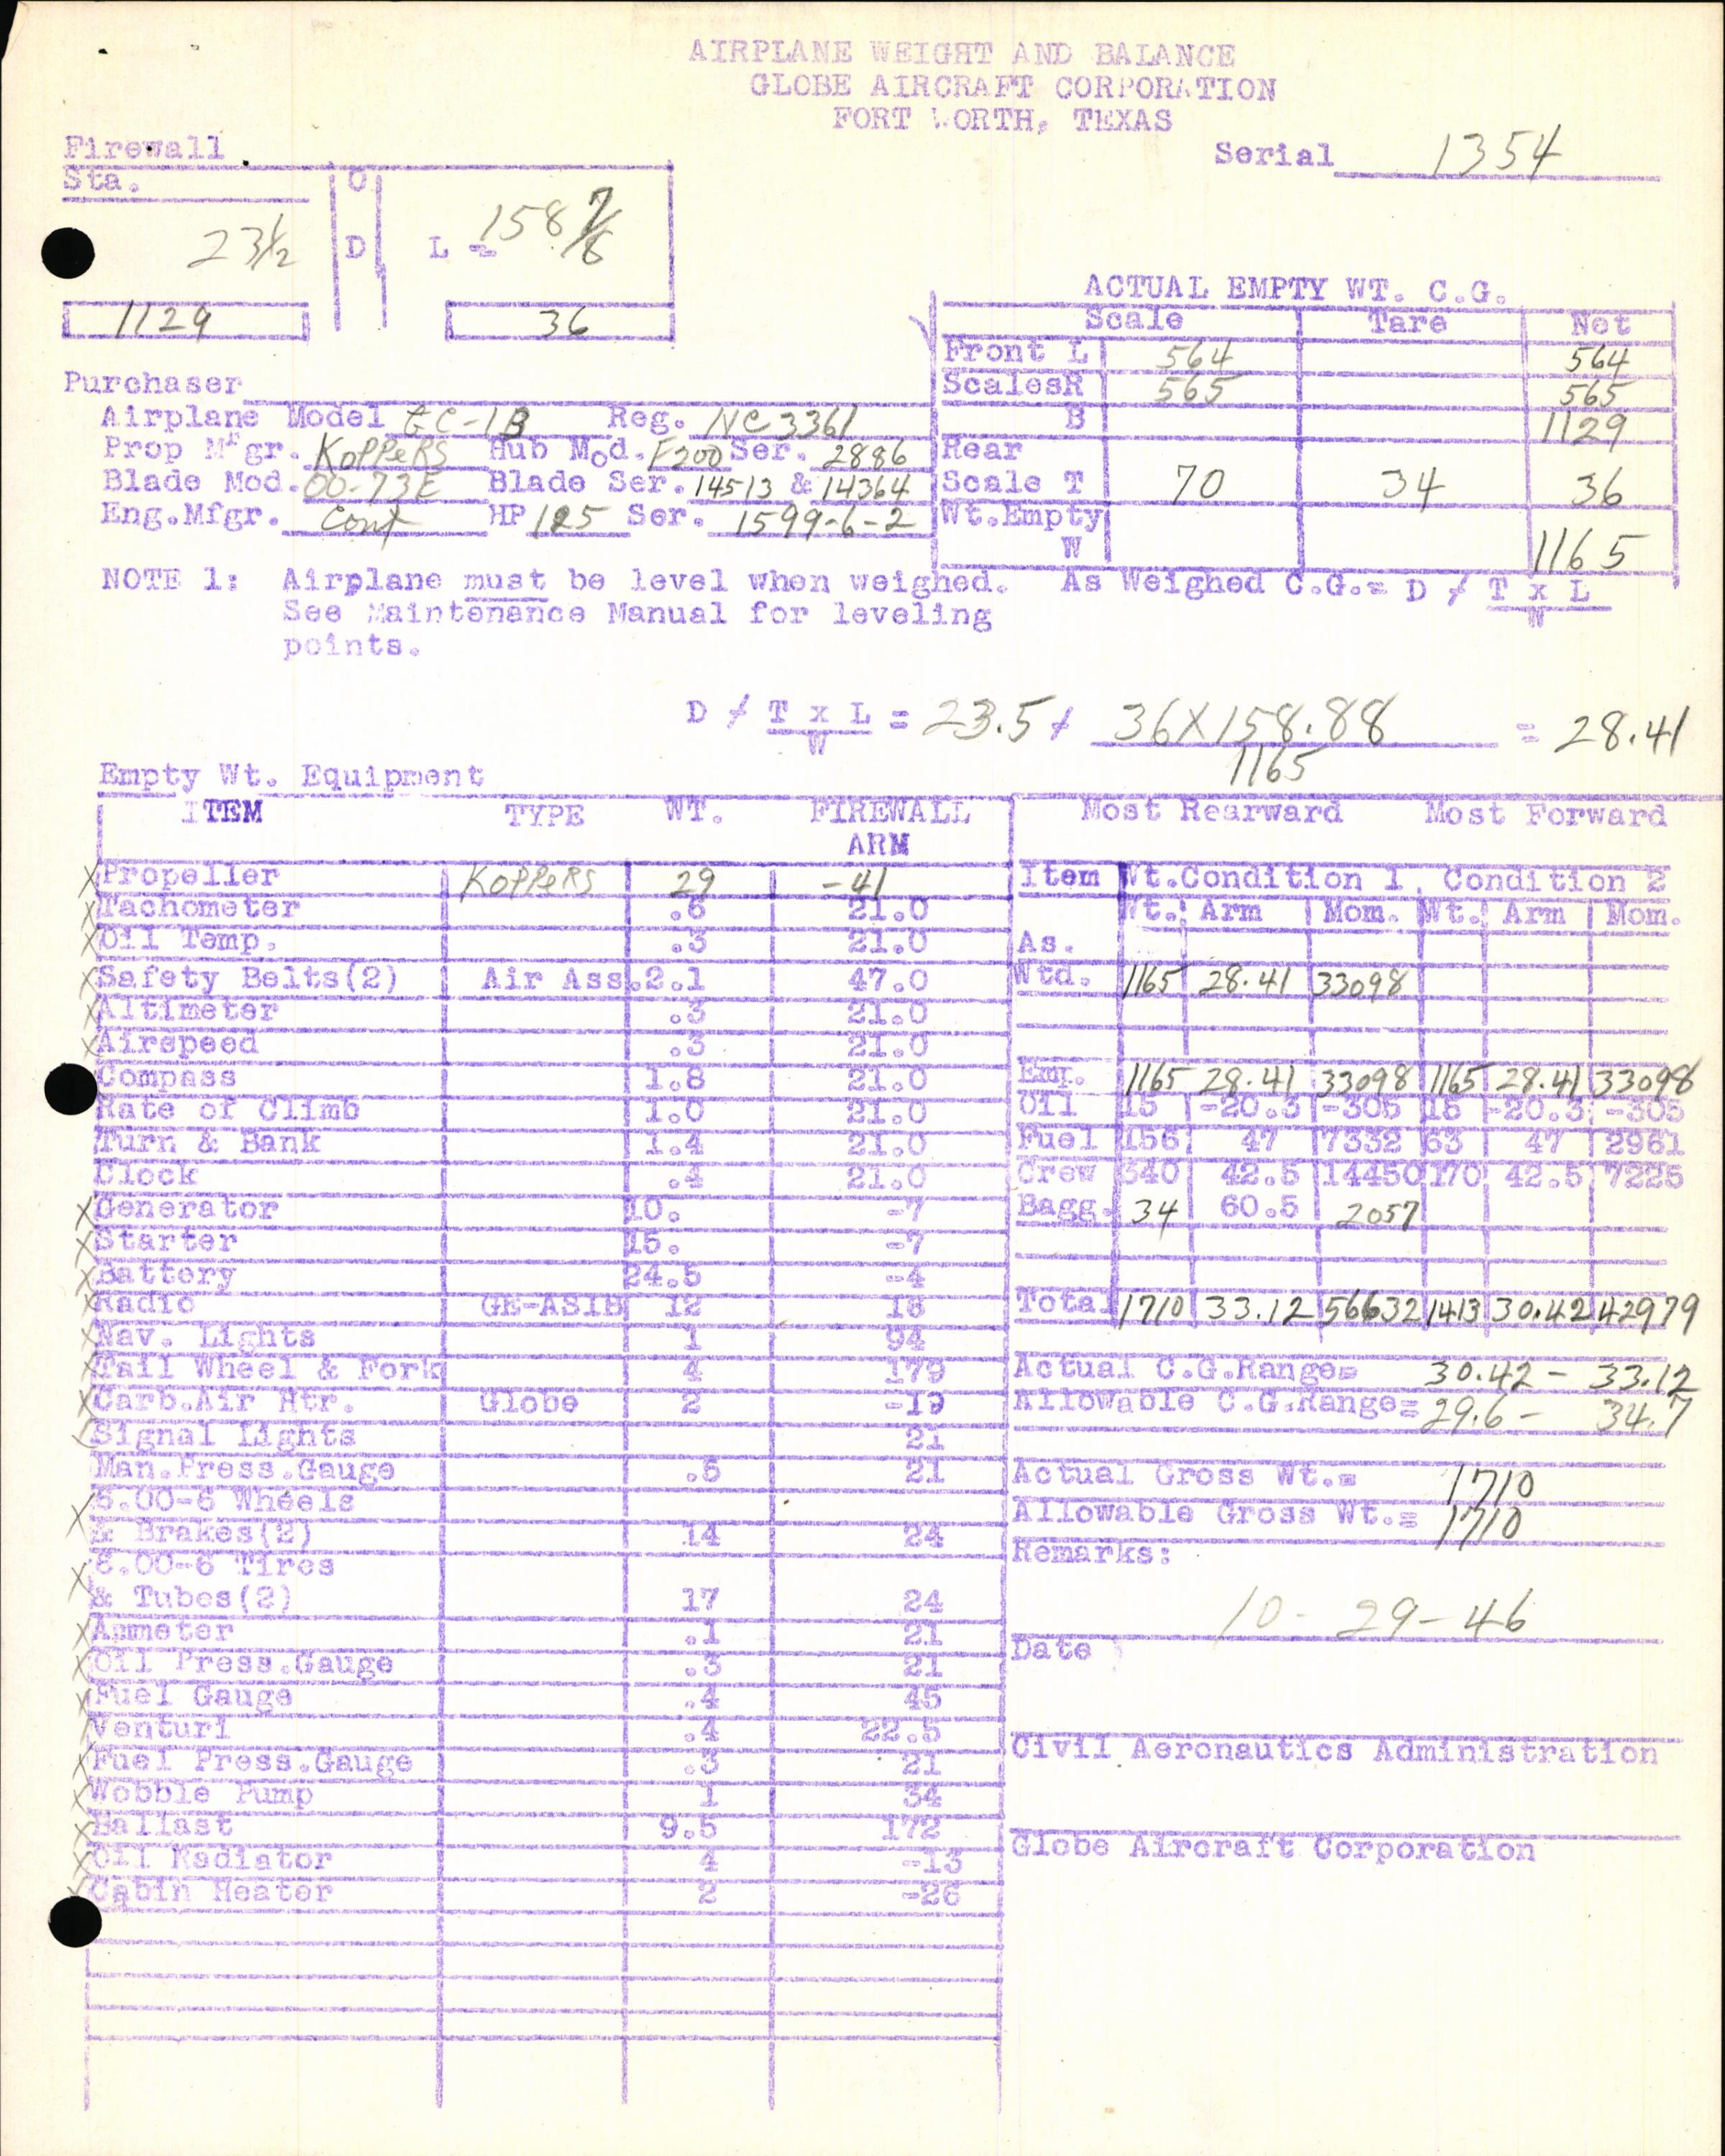 AIRPLANE WEIGHT AND BALANCE
GLOBE AIRCRAFT CORPORATION
FORT WORTH, TEXAS
Serial 1354
Firewall
Sta.
23 1/2
D
L = 158 7/8
1129 36
ACTUAL EMPTY WT. C.G.
Scale Tare Net
Front L 564 564
Scales R 565 565
B 1129
Rear
Scale T 70 34 36
Wt.Empty
W 1165
Purchaser
Airplane Model GC-1B Reg. NC 3361
Prop Mfgr. KOPPERS Hub Mod. F200 Ser. 2886
Blade Mod. 00-73E Blade Ser. 14513 & 14364
Eng.Mfgr. Cont HP 125 Ser. 1599-6-2
NOTE 1: Airplane must be level when weighed. As Weighed C.G.= D / T x L
W
See Maintenance Manual for leveling
points.
D / T x L = 23.5 / 36 X 158.88 = 28.41
W 1165
Empty Wt. Equipment
ITEM TYPE WT. FIREWALL
ARM
X Propeller KOPPERS 29 -41
X Tachometer .6 21.0
X Oil Temp. .3 21.0
X Safety Belts(2) Air Ass. 2.1 47.0
X Altimeter .3 21.0
X Airspeed .3 21.0
Compass 1.8 21.0
Rate of Climb 1.0 21.0
Turn & Bank 1.4 21.0
Clock .4 21.0
X Generator 10. -7
X Starter 15. -7
X Battery 24.5 -4
X Radio GE-AS1B 12 18
X Nav. Lights 1 94
X Tail Wheel & Fork 4 179
X Carb.Air Htr. Globe 2 -19
Signal Lights 21
Man.Press.Gauge .5 21
X 6.00-6 Wheels
& Brakes(2) 14 24
X 6.00-6 Tires
& Tubes(2) 17 24
X Ammeter .1 21
X Oil Press.Gauge .3 21
X Fuel Gauge .4 45
Venturi .4 22.5
X Fuel Press.Gauge .3 21
X Wobble Pump 1 34
X Ballast 9.5 172
X Oil Radiator 4 -13
X Cabin Heater 2 -26
Most Rearward Most Forward
Item Wt.Condition 1 Condition 2
Wt. Arm Mom. Wt. Arm Mom.
As.
Wtd. 1165 28.41 33098
Emp. 1165 28.41 33098 1165 28.41 33098
Oil 15 -20.3 -305 15 -20.3 -305
Fuel 156 47 7332 63 47 2961
Crew 340 42.5 14450 170 42.5 7225
Bagg. 34 60.5 2057
Total 1710 33.12 56632 1413 30.42 42979
Actual C.G.Range= 30.42 - 33.12
Allowable C.G.Range= 29.6 - 34.7
Actual Gross Wt.= 1710
Allowable Gross Wt.= 1710
Remarks:
10-29-46
Date
Civil Aeronautics Administration
Globe Aircraft Corporation